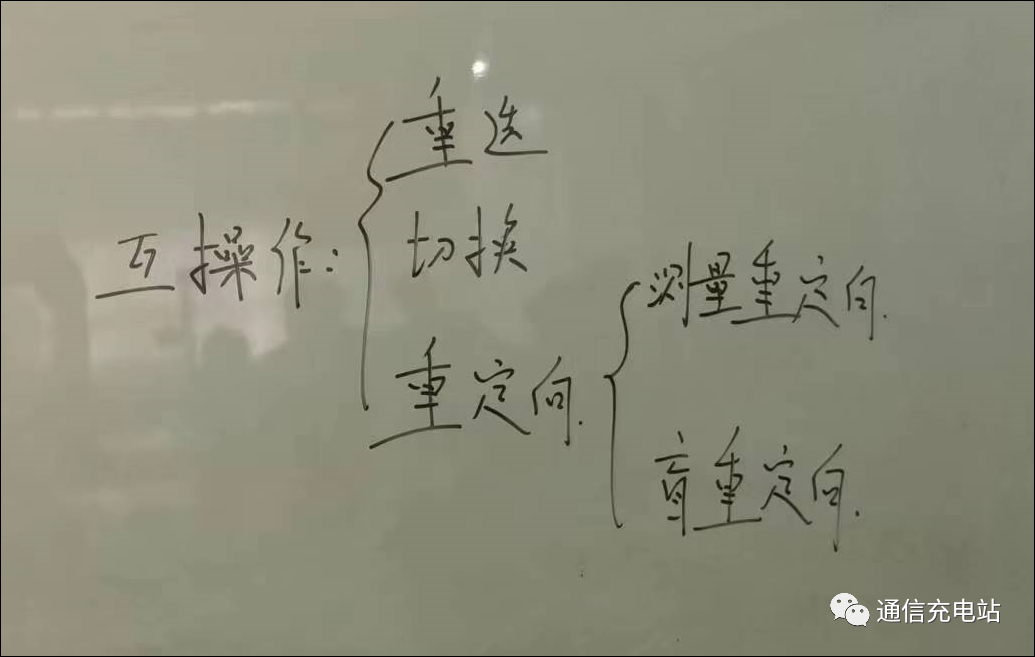 互操作:
重选
切换
重定向.
测量重定向.
盲重定向.
通信充电站